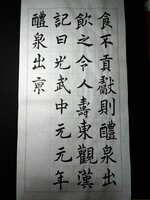 食不貢獻則醴泉出
飲之令人壽東觀漢
記曰光武中元元年
醴泉出京